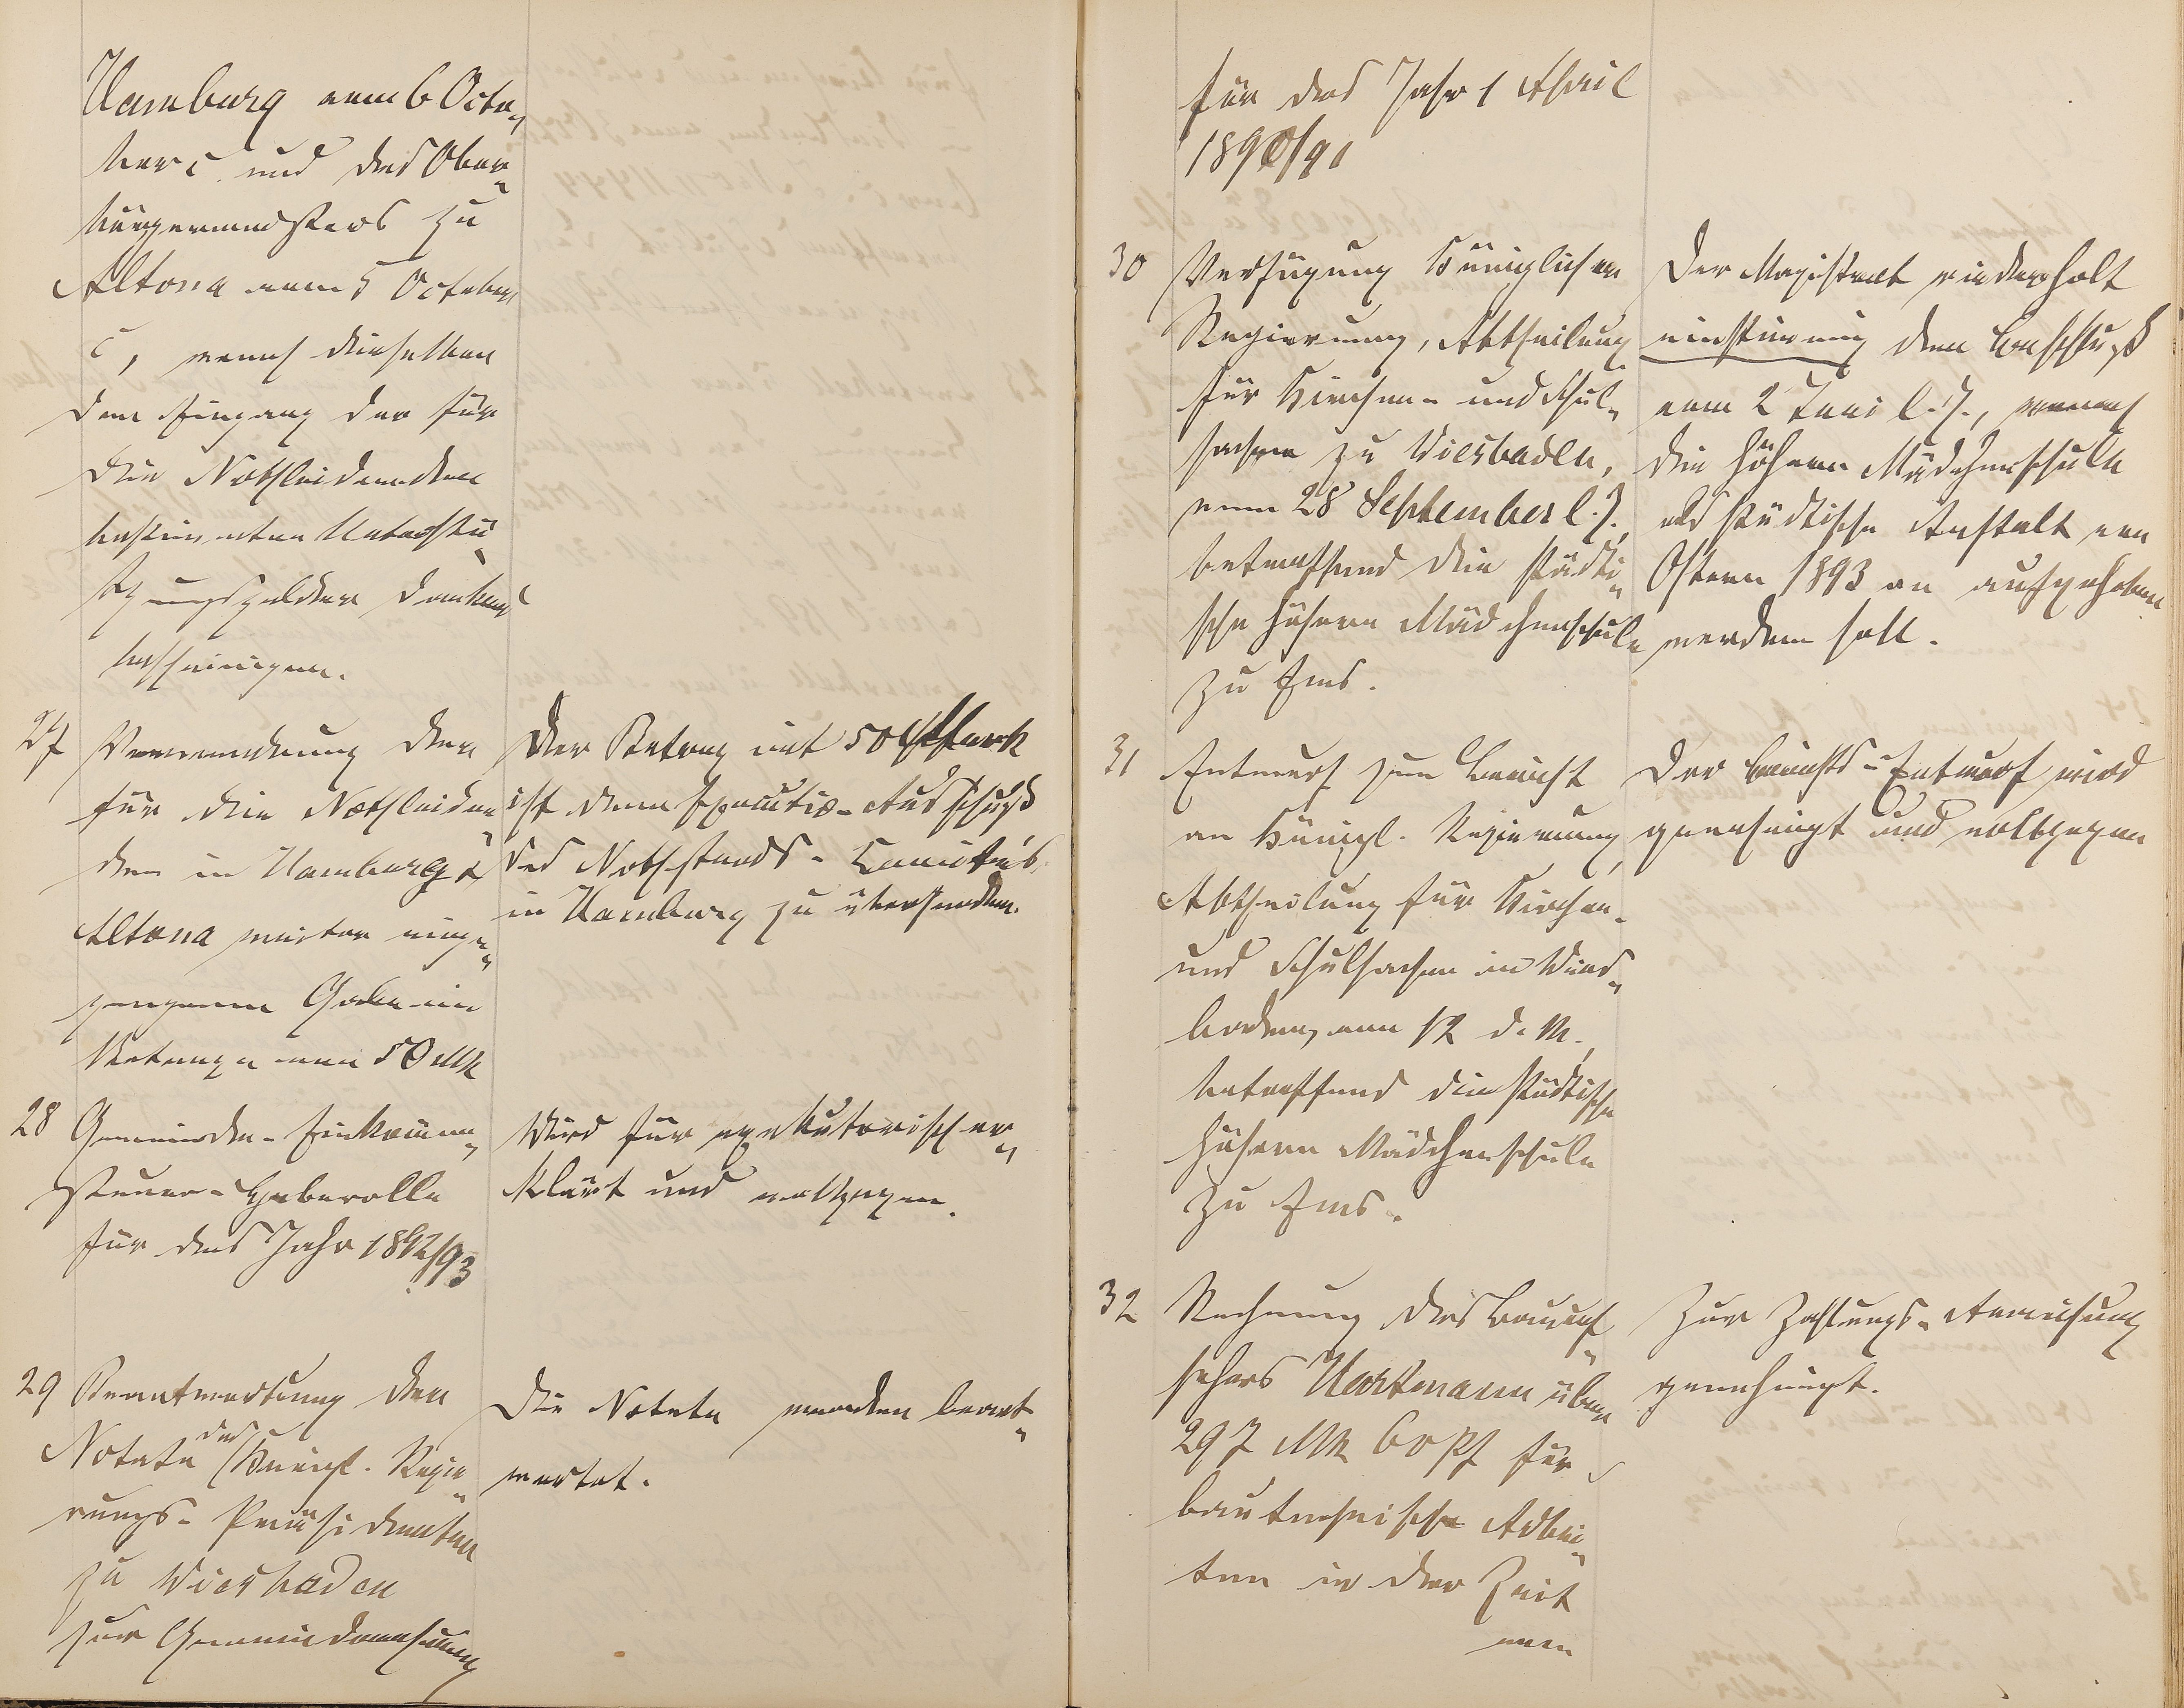 Hamburg vom 6 Octo„
ber c. und des Ober„
bürgermeisters zu
Altona vom 5 October
c, wonach dieselben
den Eingang der für
die Nothleidenden
bestimmten Unterstü„
tzungsgelder dankend
bescheinigen.
27 Verwendung der
für die Nothleiden„
den in Hamburg &
Altona weiter einge„
gangenen Gabe im
Betrage von 50 Mk
Der Betrag mit 50 Mark
ist dem Executiv-Ausschuß
des Nothstands-Comités
in Hamburg zu übersenden.
28 Gemeinde-Einkommen„
steuer-Heberolle
für das Jahr 1892/93
Wird für exekutorisch er„
klärt und vollzogen.
29 Beantwortung der
Notate des Königl. Regie„
rungs-Präsidenten
zu Wiesbaden
zur Gemeinderechnung
Die Notate werden beant„
wortet.
für das Jahr 1 April
1890/91
30 Verfügung Königlicher
Regierung, Abtheilung
für Kirchen- und Schul„
sachen zu Wiesbaden,
vom 28 September l. J.,
betreffend die städti„
sche höhere Mädchenschule
zu Ems.
Der Magistrat wiederholt
einstimmig den Beschluß
vom 2 Juni l. J., wonach
die höhere Mädchenschule
als städtische Anstalt von
Ostern 1893 an aufgehoben
werden soll.
31 Entwurf zum Bericht
an Königl. Regierung,
Abtheilung für Kirchen-
und Schulsachen in Wies„
baden, vom 12 d. M.,
betreffend die städtische
höhere Mädchenschule
zu Ems.
Der Berichts-Entwurf wird
genehmigt und vollzogen
32 Rechnung des Bauauf„
sehers Hartmann über
297 Mk 60 Pf für
bautechnische Arbei„
ten in der Zeit
vom
Zur Zahlungs-Anweisung
genehmigt.